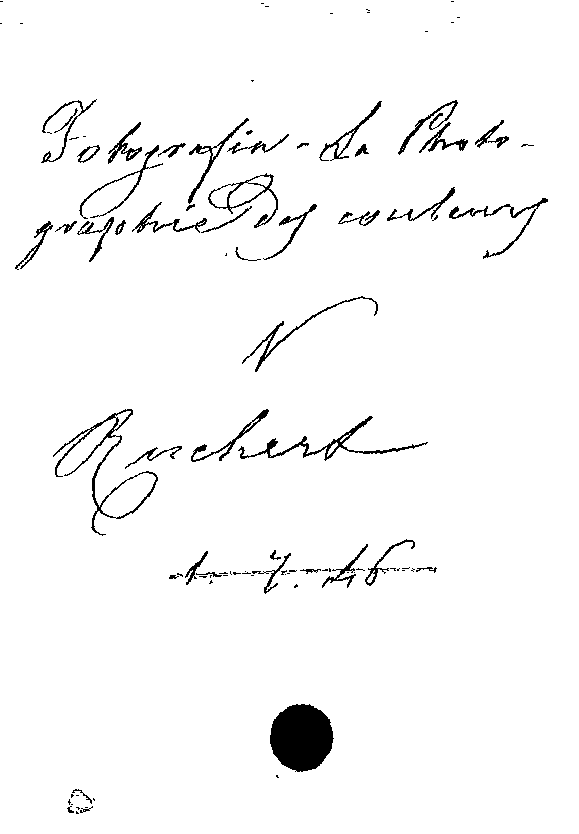 Fotografia - La Photo-
graphie des couleurs
V
Ruckert
1. 7. 46